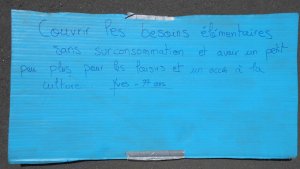 Couvrir les besoins élémentaires
sans surconsommation et avoir un petit
peu plus pour les loisirs et un accès à la
culture Yves - 77 ans